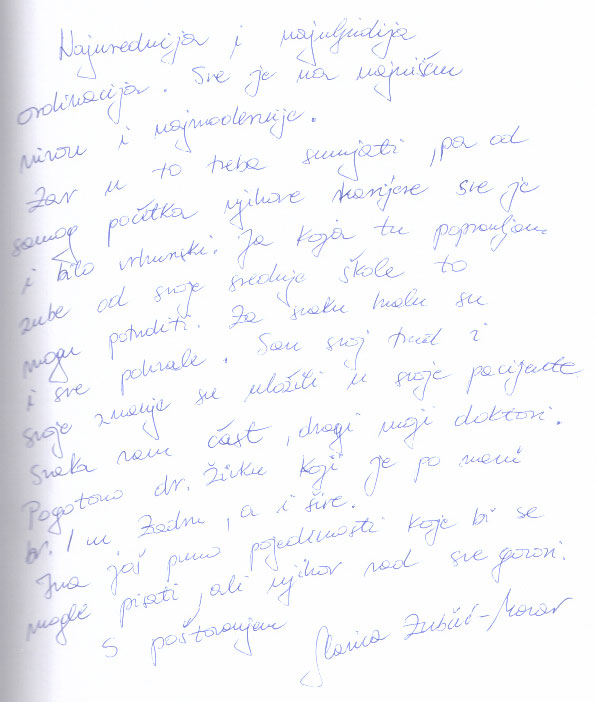 Najurednija i najuljudnija
ordinacija. Sve je na najvišem
nivou i najmodernije.
Zar u to treba sumnjati, pa od
samog početka njihove karijere sve je
i bilo vrhunski. Ja koja tu popravljam
zube od svoje srednje škole to
mogu potvrditi. Za svaku hvalu su
i sve pohvale. Sav svoj trud i
svoje znanje su uložili u svoje pacijente.
Svaka vam čast, dragi moji doktori.
Pogotovo dr. Žilku koji je po meni
br. 1 u Zadru, a i šire.
Ima još puno pojedinosti koje bi se
mogle pisati, ali njihov rad sve govori.
S poštovanjem Slavica Zubčić-Morav